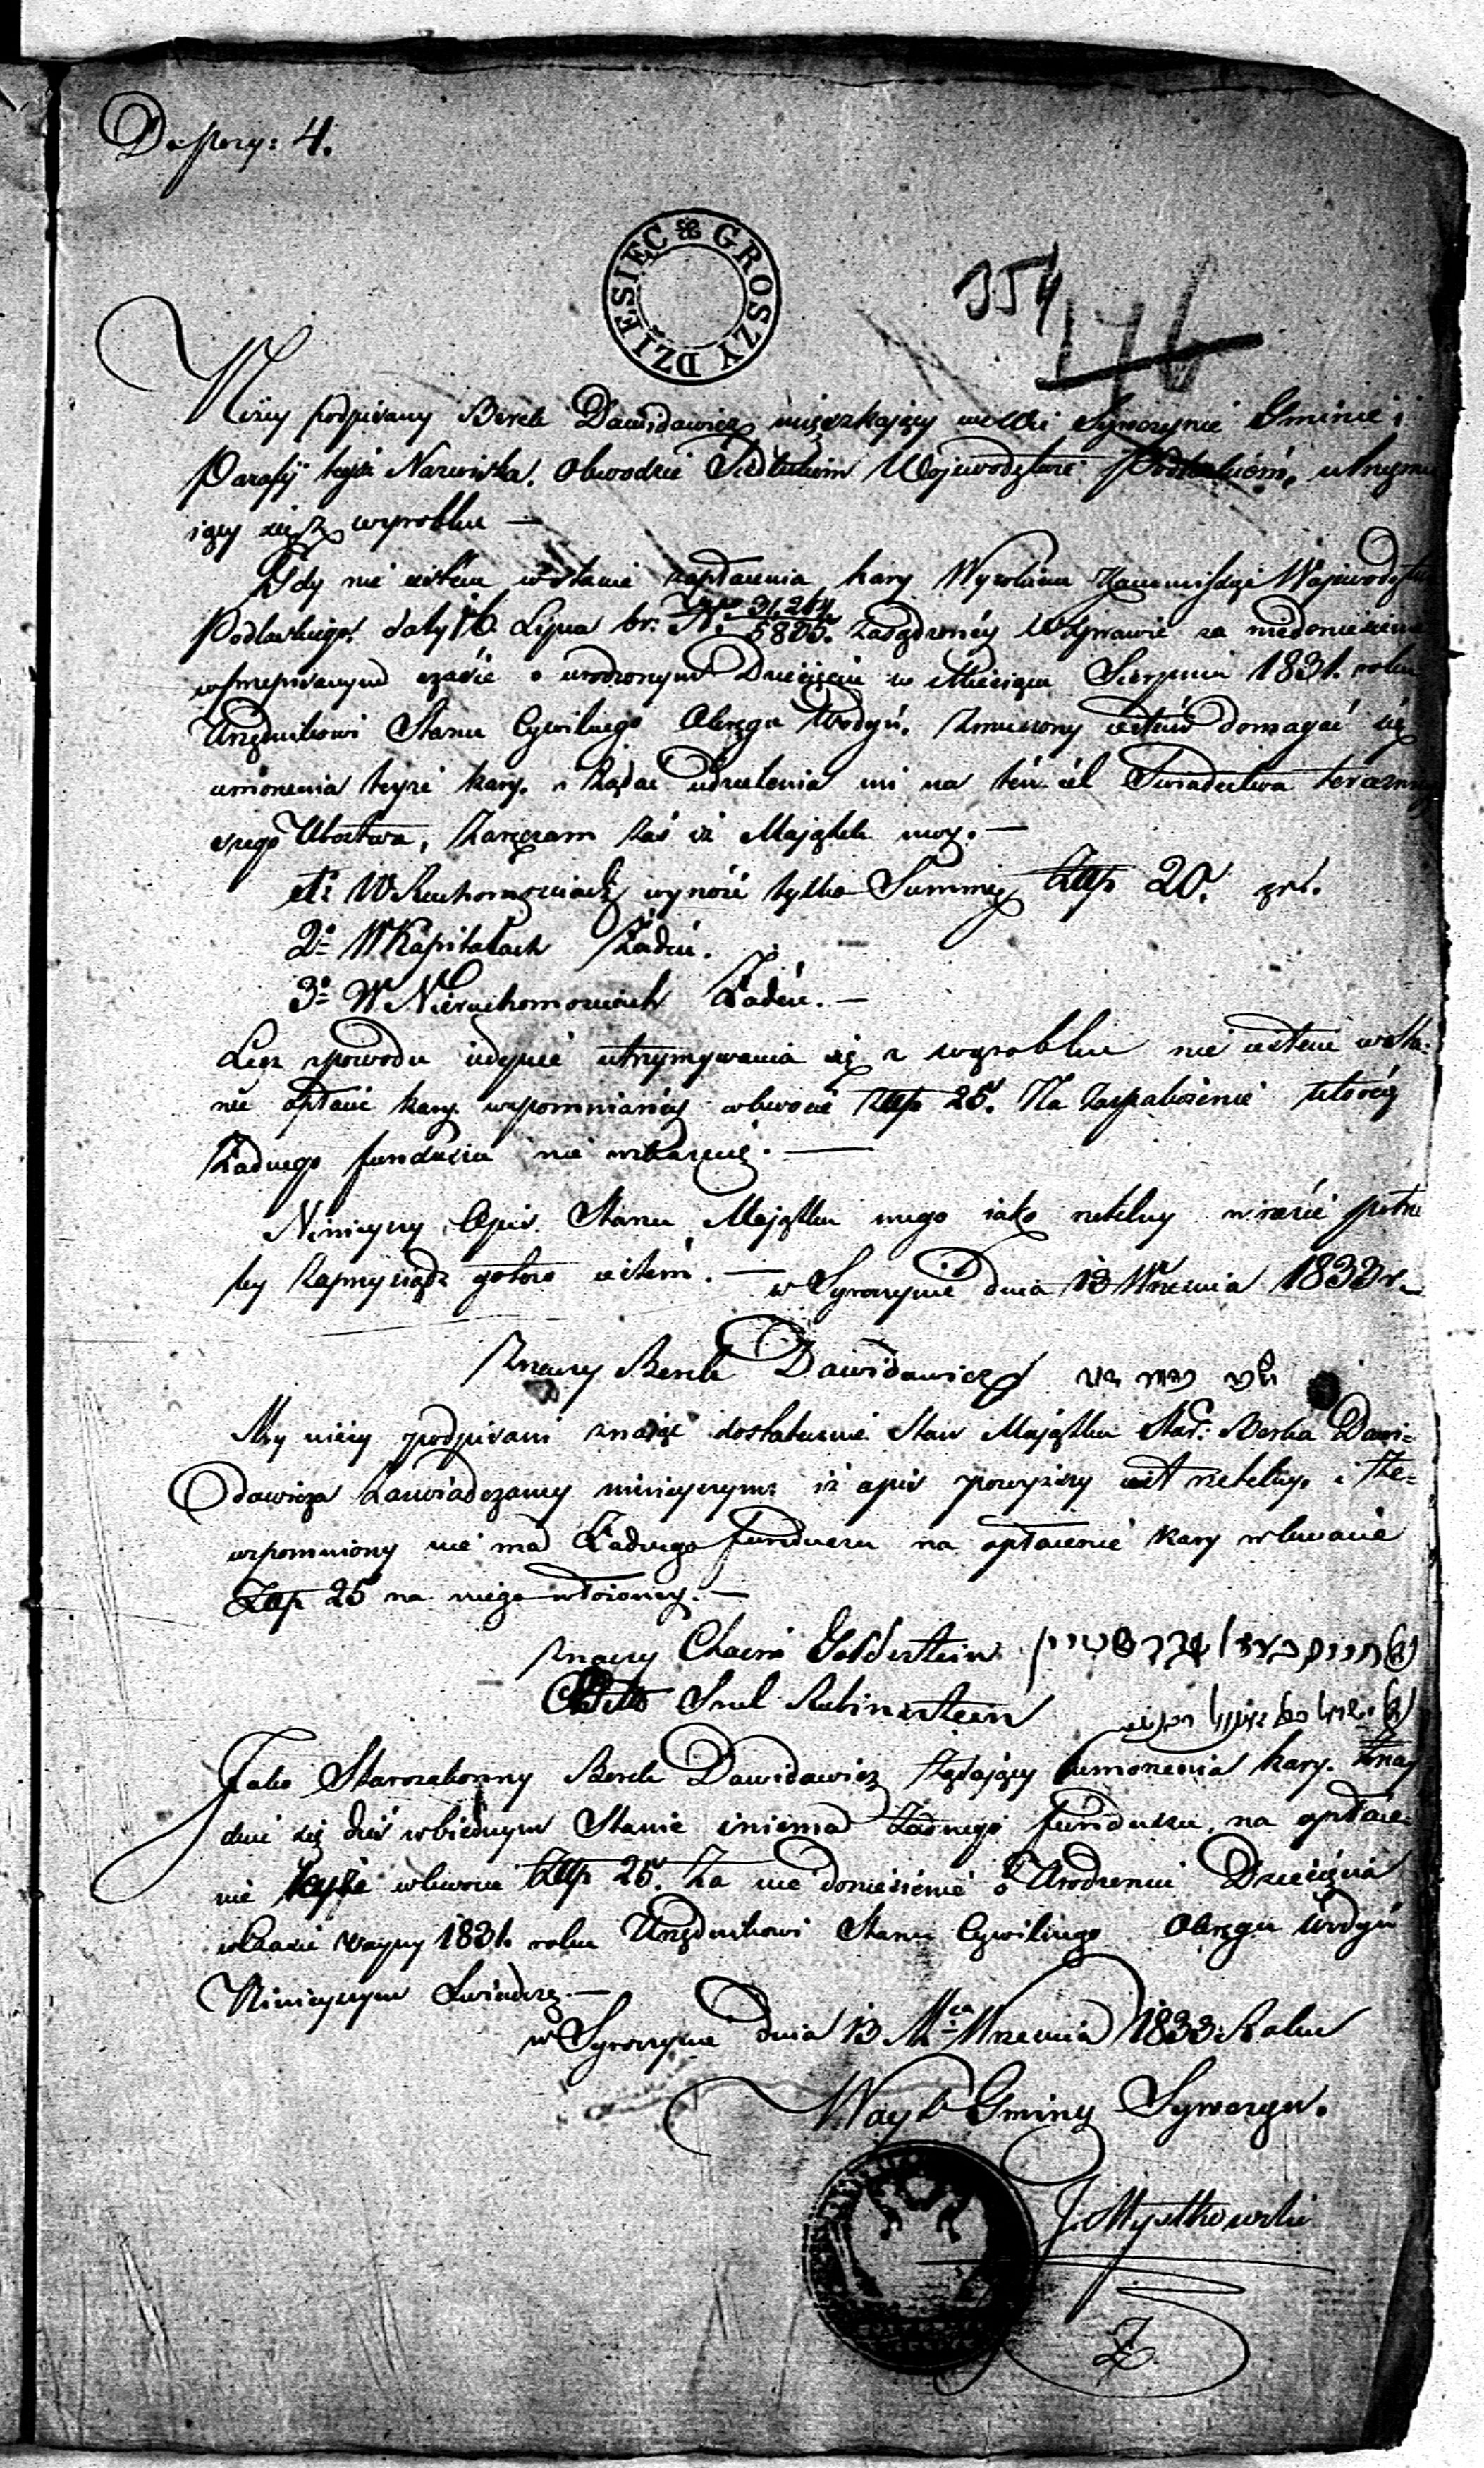 Do pozy: 4.
DZIESIĘC GROSZY
354
176
Niżey podpisany Berek Dawidowicz mięszkaiący we Wsi Syroczynie Gminie i
Parafij teyże Nazwiska, Obwodzie Siedleckim Woiewodztwie Podlaskiém, utrzymu
iący się z wyrobku —
Gdy nie iestem wstanie zapłacenia kary Wyrokiem Kommissyi Wojewodztwa
Podlaskiego daty 16 Lipca br: No 31,264/5825. zasądzonéy w sprawie za niedoniesienie
wprzepisanym czasie o urodzonym Dziecięciu w Miesiącu Sierpniu 1831. roku
Urzędnikowi Stanu Cywilnego Okręgu Wodyń, zmuszony iestem domagać się
umorzenia teyże kary, i żądać udzielenia mi na ten cel Swiadectwa teraznieÿ
szego Ubostwa, zaręczam zaś iż Maiątek moy. —
1o W Ruchomosciach wynosi tylko Summę Złp 20. gr.
2o W Kapitałach Żaden.
3o W Nieruchomosciach Żaden. —
Lecz zpowodu iedynie utrzymywania się z wyrobku nie iestem wsta:
nie opłacić kary wspomnianéy wkwocie Złp 25. Na zaspokoienie któréy
Żadnego funduszu nie wskazuię. —
Ninieyszy Opis Stanu Maiątku mego iako rzetelny wrazie potrze
by zaprzysiądz gotow iestem. — w Syroczynie dnia 13 Wrzesnia 1833 r.
Znaczy Berek Dawidowicz
My niżey podpisani znaiąc dostatecznie Stan Maiątku Star: Berka Dawi=
dowicza zaswiadczamy ninieyszym iż opis powyższy iest rzetelny, i że=
wspomniony nie ma Żadnego funduszu na opłacenie kary wkwocie
Złp 25 na niego włożoney. —
Znaczy Chaim Goldsztein
Ditto Srul Rubinsztein
Jako Starozakonny Berek Dawidowicz Żądaiący umorzenia kary, znay
duie się dziś wbiednym Stanie iniema Żadnego funduszu, na opłace=
nie teyże wkwocie Złp 25. Za nie doniesienie o Urodzeniu Dziecięcia
wczasie woyny 1831. roku Urzędnikowi Stanu Cywilnego Okręgu Wodyń
Ninieyszym Swiadczę. —
w Syroczynie dnia 13 Mca Wrzesnia 1833: Roku
Woyt Gminy Syroczyn.
J. Mystkowski